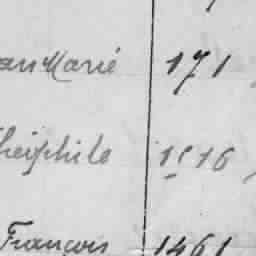 anMarié 171
héiphile 1816
François 1461